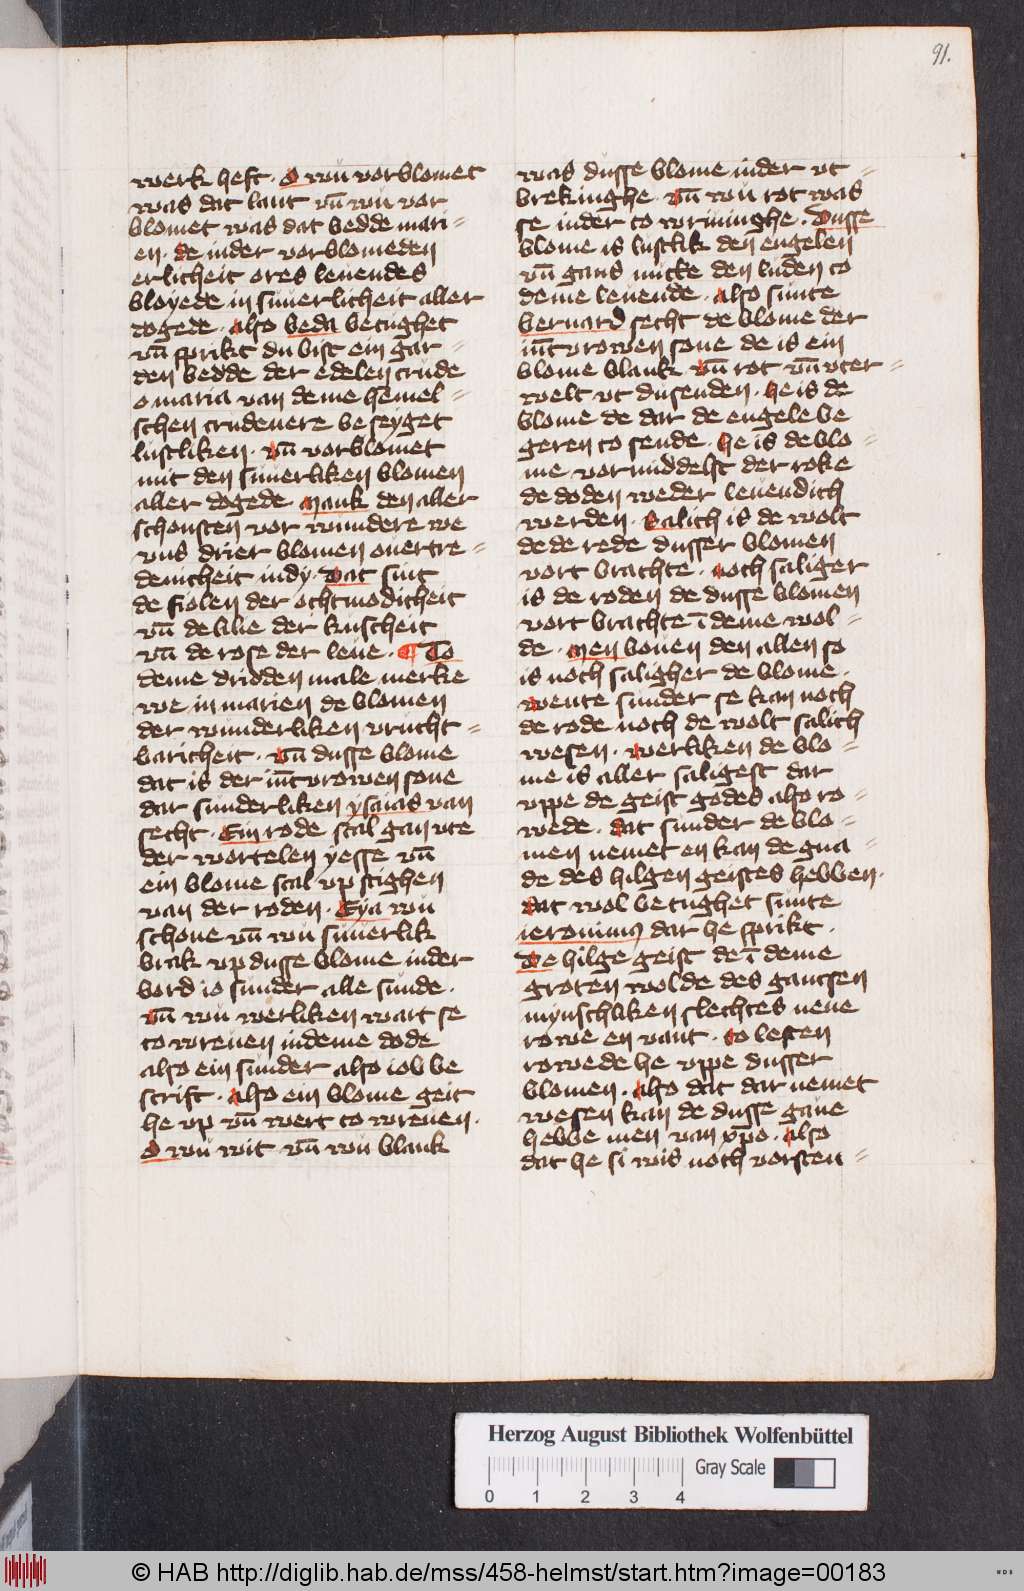 91.
werk heft. O wu vorblomet
was dat lant vn̄ wu vor
blomet was dat bedde mari=
en. de inder vorblomeden
erlicheit ores leuendes
bloyede in suuerlicheit aller
dogede. Also beda betughet
vn̄ sprikt du bist ein gar=
den bedde der edelen crude
o maria van deme hemel=
schen crudenere be seyget
lustliken. vn̄ vorblomet
mit den suuerliken blomen
aller dogede Mank den aller
schonsten vor wundere we
vns drier blomen ouertre=
denicheit in dy. Dat sint
de fiolen der othmodicheit
vn̄ de lilie der kuscheit
vn̄ de rose der leue. ¶ To
deme dridden male merke
we in marien de blomen
der wunderliken vrucht=
baricheit. vn̄ dusse blome
dat is der iūcvrowen sone
dar sunderliken ysaias van
secht. Ein rode scal gan vte
der wortelen yesse vn̄
ein blome scal vp stighen
van der roden. Eya wu
schone vn̄ wu suuerlik
brak vp dusse blome inder
bord io sunder alle sunde.
vn̄ wu werliken wart se
to wreuen in deme dode
also ein sunder also iob be
scrift. Also ein blome geit
he vp vn̄ wert to wreuen.
O wu wit vn̄ wu blank
was dusse blome inder vt=
brekinghe. vn̄ wu rot was
se inder to wriuinghe. Dusse
blome is lustlik den engelen
vn̄ gans nutte den luden to
deme leuende. Also sunte
bernard secht de blome der
iūcvrowen sone de is ein
blome blank vn̄ rot vn̄ vter=
welt vt dusenden. he is de
blome de dar de engele be
geren to sende. he is de blo=
me vormiddelst der roke
de doden weder leuendich
werden. Salich is de wolt
de de rede dusser blomen
vort brachte. noch saliger
is de roden de dusse blomen
vort brachte ī deme wol=
de. Men bouen den allen so
is noch saligher de blome.
wente sunder se kan noch
de rode noch de wolt salich
wesen. werliken de blo=
me is aller saligest dar
vppe de geist godes also ro=
wede. dat sunder de blo=
men nemet en kan de gna=
de des hilgen geistes hebben.
dat wol betughet sunte
ieronimꝰ dar he sprikt.
De hilge geist de ī deme
groten wolde des gantsen
mynschliken slechtes nene
rowe en vant. to lesten
rowede he vppe dusser
blomen. Also dat dar nemet
wesen kan de dusse gaue
hebbe men van xp̄o. also
dat he si wis noch vorsten=
Herzog August Bibliothek Wolfenbüttel
Gray Scale
0 1 2 3 4
© HAB http://diglib.hab.de/mss/458-helmst/start.htm?image=00183